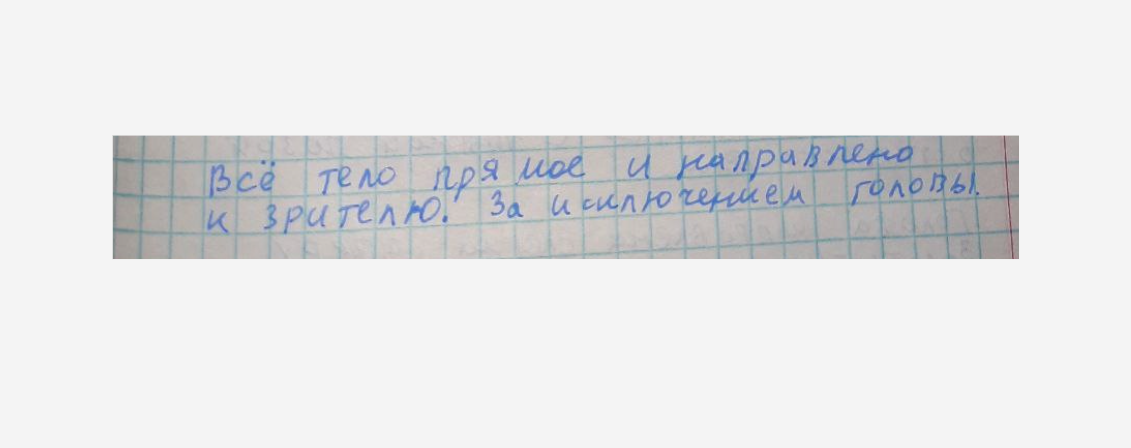 Всё тело прямое и направлено
к зрителю. За исключением головы.